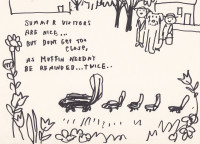 SUMMER VISITORS
ARE NICE...
BUT DONT GET TOO
CLOSE,
AS MUFFIN NEEDNT
BE REMINDED...TWICE..